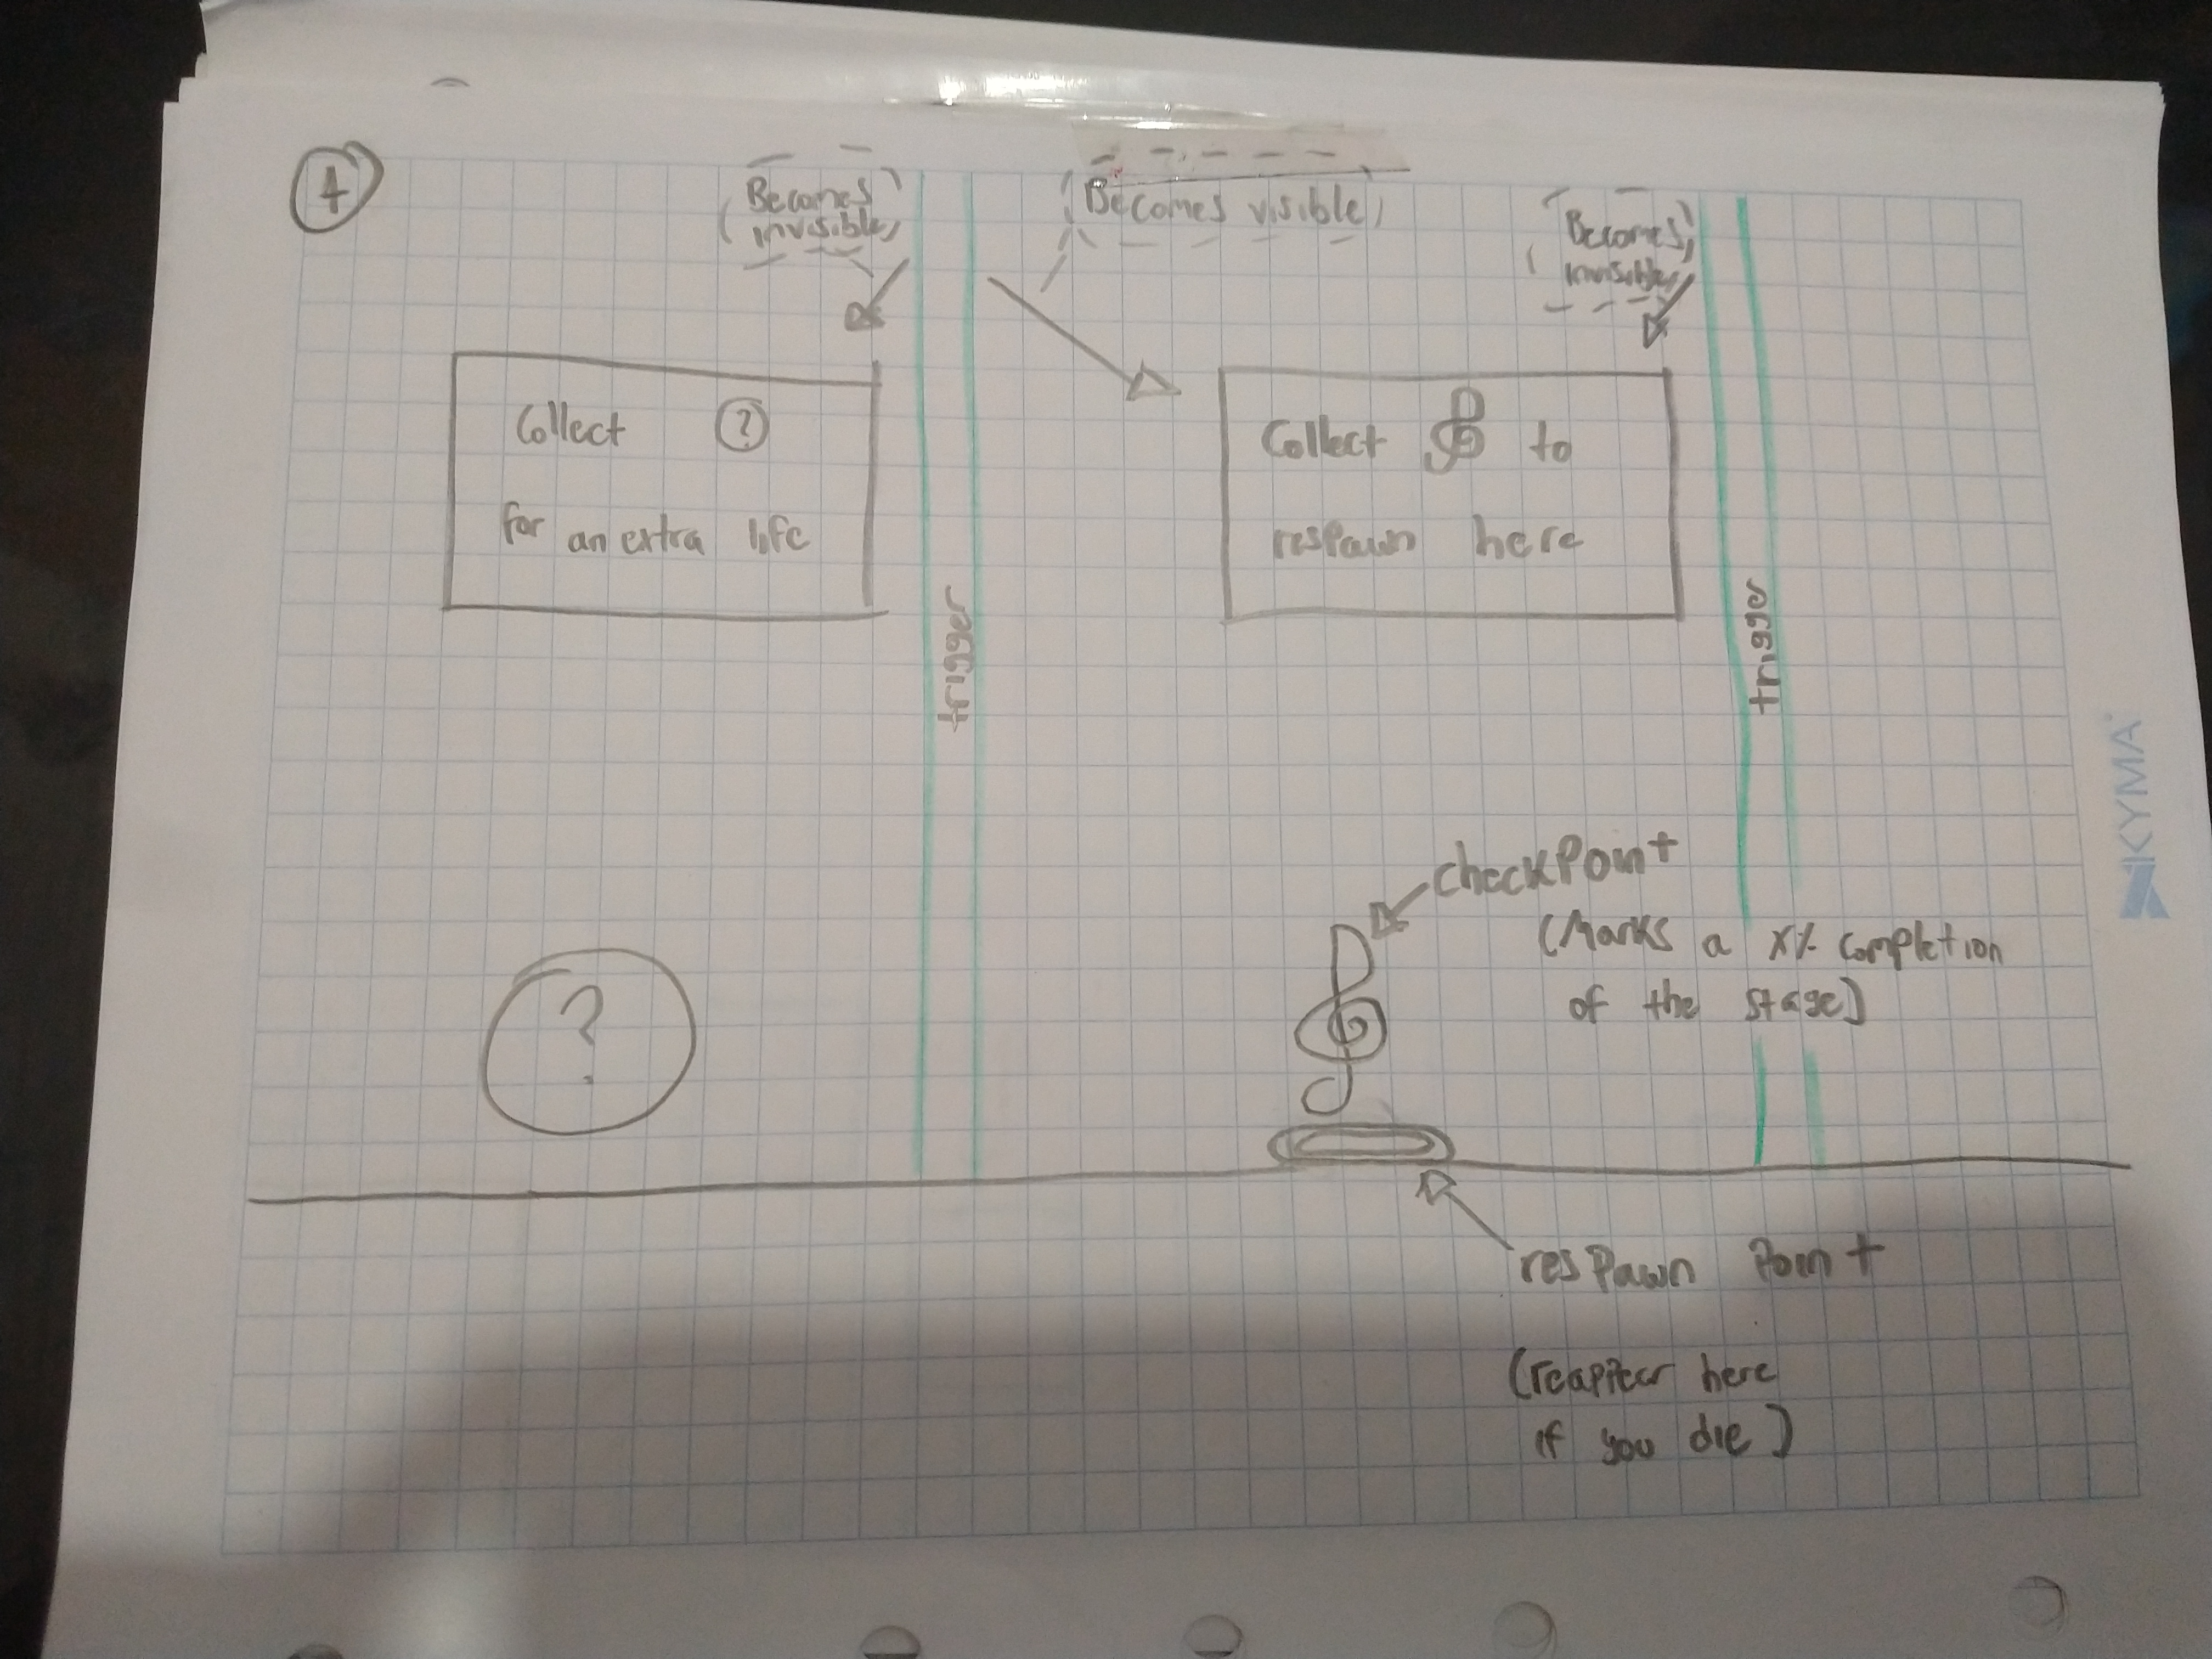 4
Becomes
invisible
Becomes visible
Becomes
invisible
Collect ?
for an extra life
Collect 𝄞 to
respawn here
trigger
trigger
checkPoint
(Marks a x% completion
of the stage)
?
resPawn Point
(reappear here
if you die)
KYMA